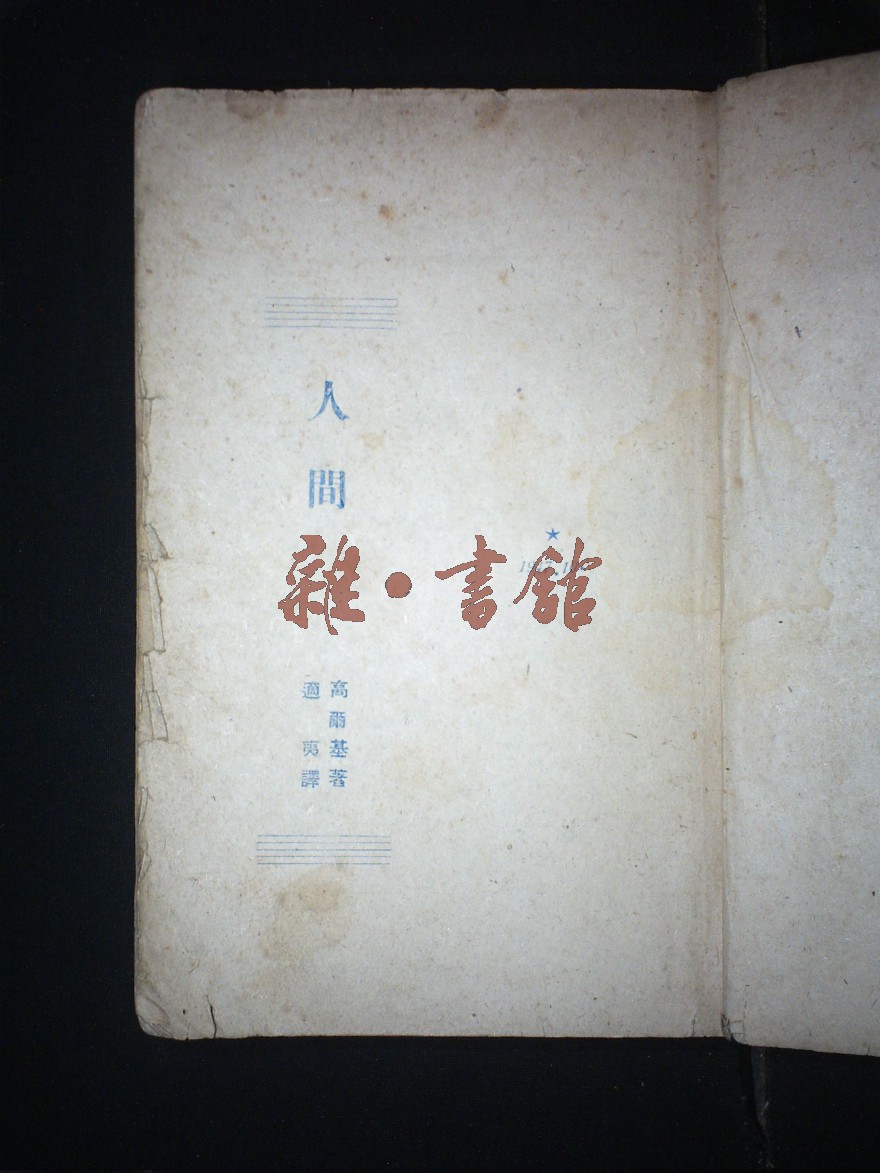 人間
高爾基著
適夷譯
★
雜·書館